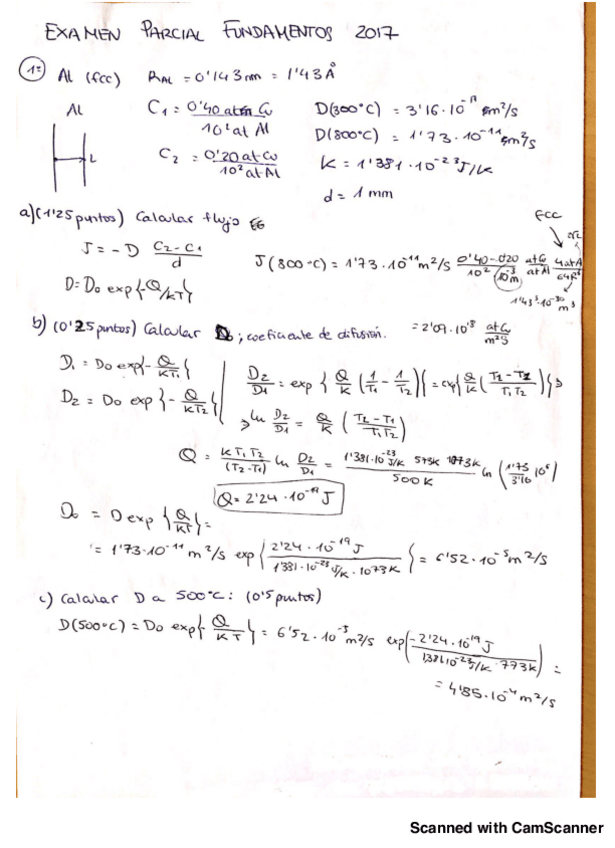 EXAMEN PARCIAL FUNDAMENTOS 2017
1º Al (fcc) R_AL = 0'143 nm = 1'43 Å
Al C₁ = 0'40 atm Cu / 10² at Al D(300°C) = 3'16·10⁻¹⁷ m²/s
D(800°C) = 1'73·10⁻¹¹ m²/s
L C₂ = 0'20 at Cu / 10² at Al K = 1'381·10⁻²³ J/K
d = 1 mm
a) (1'25 puntos) Calcular flujo
FCC
J = -D (C₂-C₁)/d J(800°C) = 1'73·10⁻¹¹ m²/s (0'40-0'20)/(10² 10⁻³ m) at Cu/at Al
D = D₀ exp{-Q/KT} 1'43³·10⁻³⁰ m³
b) (0'25 puntos) Calcular D₀; coeficiente de difusión. = 2'09·10¹⁸ at Cu/m²s
D₁ = D₀ exp{-Q/KT₁}
D₂ = D₀ exp{-Q/KT₂}
D₂/D₁ = exp{Q/K (1/T₁ - 1/T₂)} = exp{Q/K (T₂-T₁/T₁T₂)}
ln D₂/D₁ = Q/K (T₂-T₁/T₁T₂)
Q = KT₁T₂/(T₂-T₁) ln D₂/D₁ = 1'381·10⁻²³ J/K 573K 1073K / 500K ln (1'73/3'16 10⁶)
Q = 2'24·10⁻¹⁹ J
D₀ = D exp{Q/KT} =
= 1'73·10⁻¹¹ m²/s exp{2'24·10⁻¹⁹ J / 1'381·10⁻²³ J/K · 1073K} = 6'52·10⁻⁵ m²/s
c) Calcular D a 500°C: (0'5 puntos)
D(500°C) = D₀ exp{-Q/KT} = 6'52·10⁻⁵ m²/s exp(-2'24·10⁻¹⁹ J / 1'381·10⁻²³ J/K · 773K) =
= 4'85·10⁻⁴ m²/s
Scanned with CamScanner